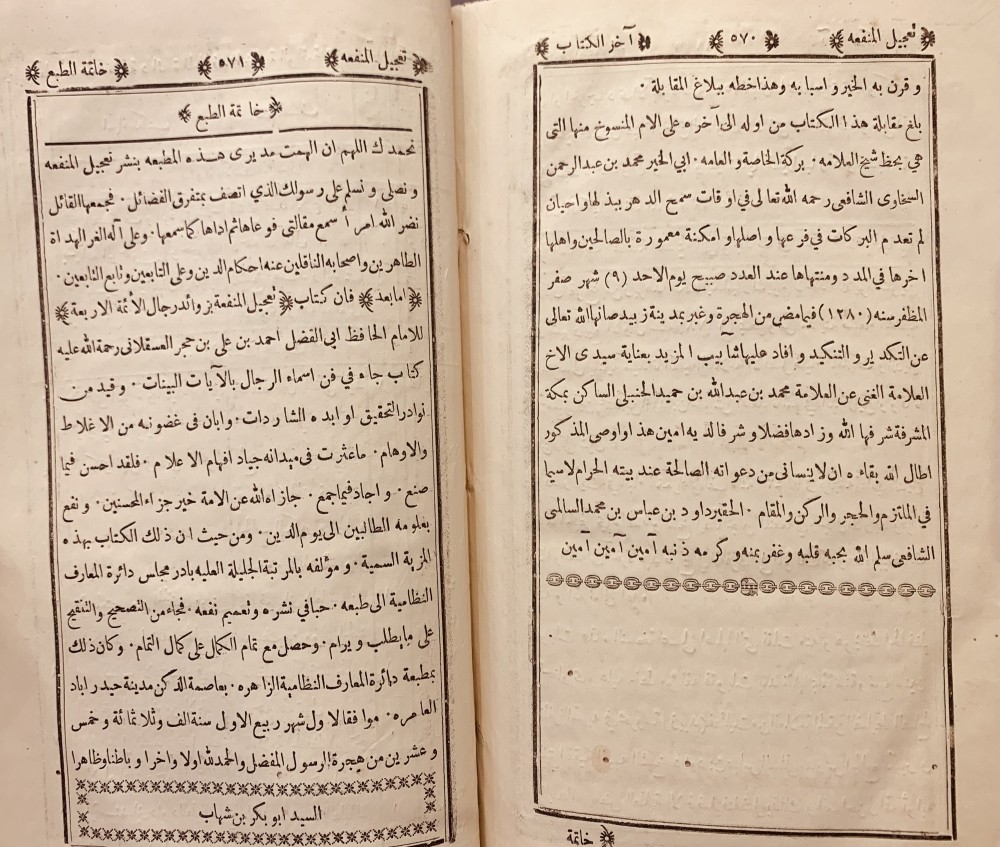 تعجيل المنفعه ٥٧٠ آخر الكتاب
و قرن به الخير و اسبا به وهذا خطه ببلاغ المقابلة ٠
بلغ مقابلة هذا الكتاب من اوله الى آخره على الام المنسوخ منها التى
هي بخط شيخ العلامه ٠ بركة الخاصة و العامه ٠ ابي الخير محمد بن عبد الرحمن
السخاوى الشافعى رحمه الله تعالى فى او قات سمح الدهر ببذ لها و احيان
لم تعدم البركات في فرعها و اصلها و امكنة معمورة بالصالحين و اهلها
اخرها في المدد ومنتهاها عند العدد صبيح يوم الاحد (٩) شهر صفر
المظفر سنه (١٢٨٠) فيما مضى من الهجرة وغبر بمدينة زبيد صانها الله تعالى
عن التكدير و التنكيد و افاد عليها شآ بيب المزيد بعناية سيدى الاخ
العلامة الغنى عن العلامة محمد بن عبد الله بن حميد الحنبلى الساكن بمكة
المشرفة شرفها الله وزادها فضلا و شرفا لديه امين هذا و اوصى المذكور
اطال الله بقاءه ان لا ينسانى من دعواته الصالحة عند بيته الحرام لاسيما
في الملتزم والحجر والركن والمقام ٠ الحقير داود بن عباس بن محمد السالمى
الشافعى سلم الله بحبه قلبه وغفر بمنه و كرمه ذنبه آمين آمين آمين
خاتمة
تعجيل المنفعه ٥٧١ خاتمة الطبع
خاتمة الطبع
نحمدك اللهم ان الهمت مديرى هذه المطبعه بنشر تعجيل المنفعه
و نصلى و نسلم على رسولك الذي اتصف بمتفرق الفضائل ٠ فجمعها القائل
نضر الله امرأ سمع مقالتى فوعاها ثم اداها كما سمعها ٠ وعلى آله الغر الهداة
الطاهرين و اصحابه الناقلين عنه احكام الدين وعلى التابعين وتابع التابعين ٠
اما بعد فان كتاب تعجيل المنفعة بزوائد رجال الأئمة الاربعة
للامام الحافظ ابى الفضل احمد بن على بن حجر العسقلانى رحمة الله عليه
كتاب جاء في فن اسماء الرجال بالآيات البينات ٠ و قيد من
نوادر التحقيق او ابده الشاردات ٠ وابان فى غضونه من الاغلاط
والاوهام ٠ ما عثرت فى ميدانه جياد افهام الاعلام ٠ فلقد احسن فيما
صنع ٠ و اجاد فيما جمع ٠ جازاه الله عن الامة خير جزاء المحسنين ٠ و نفع
بعلومه الطالبين الى يوم الدين ٠ ومن حيث ان ذلك الكتاب بهذه
المزية السمية ٠ و مؤلفه بالمرتبة الجليلة العليه بادر مجلس دائرة المعارف
النظامية الى طبعه ٠ حبا فى نشره و تعميم نفعه ٠ فجاء من التصحيح والتنقيح
على ما يطلب و يرام ٠ وحصل مع تمام الكمال على كمال التمام ٠ وكان ذلك
بمطبعة دائرة المعارف النظامية الزاهره ٠ بعاصمة الدكن مدينة حيدر اباد
العامره ٠ موافقا لاول شهر ربيع الاول سنة الف وثلاثمائة و خمس
و عشرين من هجرة الرسول المفضل والحمد لله اولا واخرا و باطنا وظاهرا
السيد ابو بكر بن شهاب